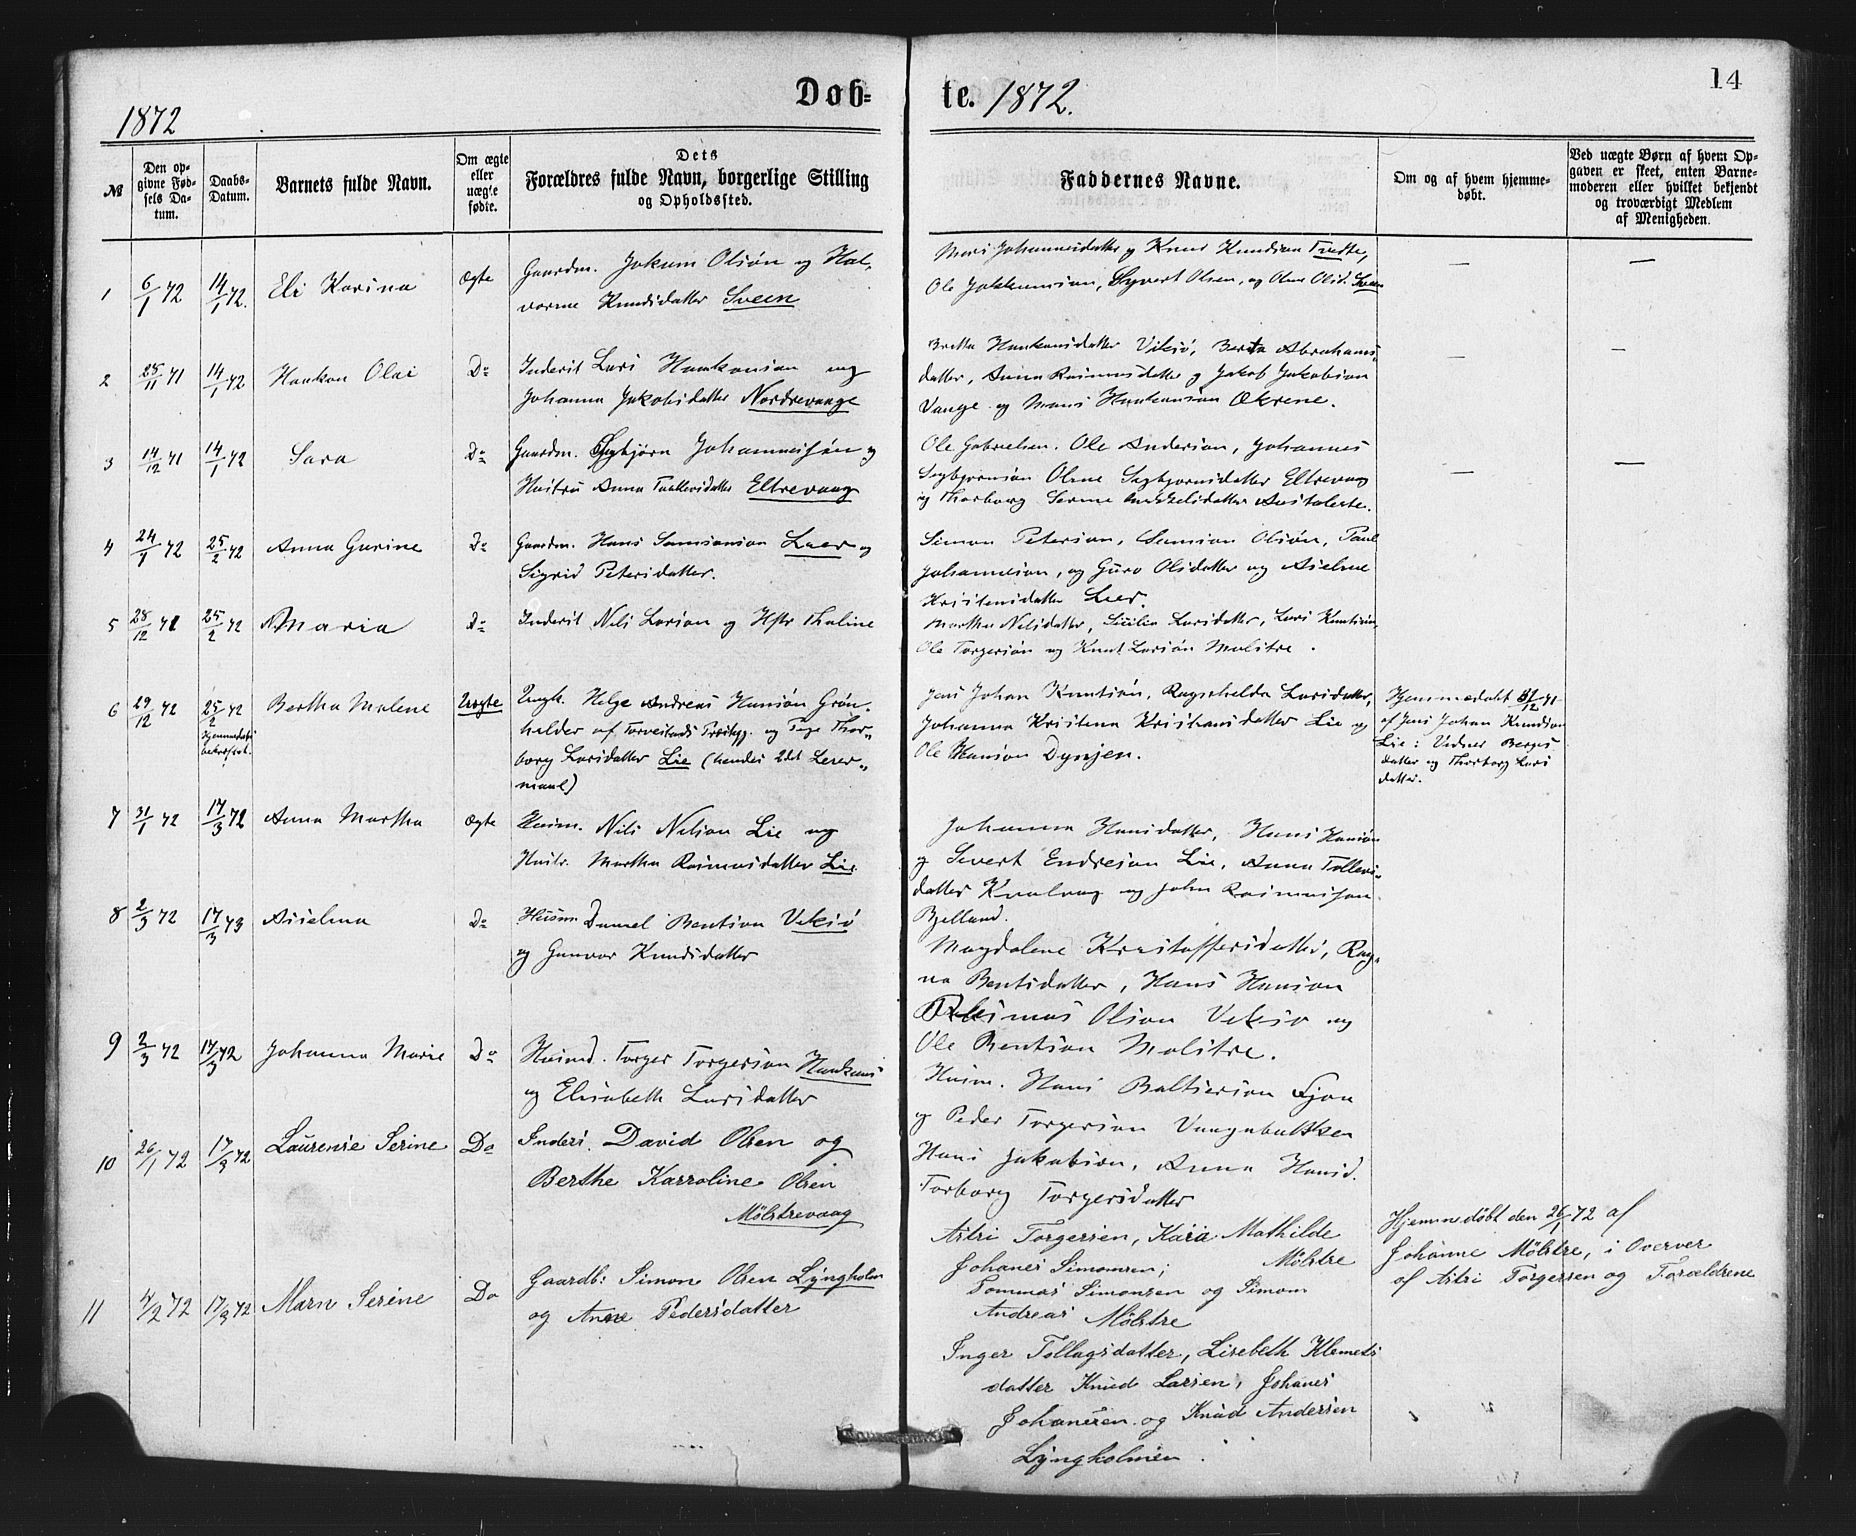 14
Døb=
te. 1872.
1872
№
Den op-
givne Fød-
sels Da-
tum.
Daabs-
Datum.
Barnets fulde Navn.
Om ægte
eller
uægte
fødte.
Dets
Forældres fulde Navn, borgerlige Stilling
og Opholdssted.
Faddernes Navne.
Om og af hvem hjemme-
døbt.
Ved uægte Børn af hvem Op-
gaven er skeet, enten Barne-
moderen eller hvilket bekjendt
og troværdigt Medlem
af Menigheden.
1
6/1 72
14/1 72.
Eli Karina
Ægte
Gaardm. Jokum Olsøn og Hal-
vorine Knudsdatter Sveen
Mari Johannesdatter og Knud Knudsson Tvedte,
Ole Jokkumsson, Syvert Olsen, og Oline Olsd. Sveen
—
—
2
25/11 71
14/1 72
Haakon Olai
Do
Inderst Lars Haakonson og
Johanna Jakobsdatter Nordrevaage
Bretta Haakonsdatter Viksø, Berta Abrahams-
datter, Anna Rasmusdatter og Jakob Jakobson
Vaage og Mons Haakonson Økrene.
—
—
3
14/12 71
14/1 72
Sara
Do
Gaardm. Sygbjørn Johannessøn og
Hustru Anna Tollevsdatter Eltrevaag
Ole Gabrielsen. Ole Anderson, Johannes
Segbjørnsøn Oline Segbjørnsdatter Eltrevaag
og Thorborg Serine Austolerte.
—
—
4
24/1 72
25/2 72
Anna Gurine
Do
Gaardm. Hans Samsonson Leer og
Sigrid Petersdatter.
Simon Peterson, Samson Olsøn, Paul
Johanneson, og Guro Olsdatter og Aselme
Kristensdatter Leer.
5
28/12 71
25/2 72
Maria
Do
Inderst Nils Larson og Hstr Thaline
Martha Nelsdatter, Sisilia Larsdatter, Lars Knutson,
Ole Torgersøn og Knut Larsøn Molstre.
6
29/12 72
25/2 72
Hjemmedaab
bekræftet.
Bertha Malene
Uægte
Ungk. Helge Andreas Hansøn Grøn-
helder af Torvestads Præstegj. og Pige Thor-
borg Larsdatter Lie (hendes 2det Leier-
maal)
Jens Johan Knutsøn, Ragnhilda Larsdatter,
Johanna Kristena Kristiansdatter Lie og
Ole Hanson Dynjen.
Hjemmedøbt 31/12 71
af Jens Johan Knudson
Lie: Vidner Berges
datter og Thorborg Lars
datter.
7
31/1 72
17/3 72
Anna Martha
Ægte
Husm. Nils Nelson Lie og
Hustr. Martha Rasmusdatter Lie.
Johanna Hansdatter, Hans Hansøn
og Severt Endreson Lie, Anna Tollevs-
datter Kvalvaag og John Rasmusson
Bjelland.
8
2/3 72
17/3 73
Aselma
Do
Husm. Daniel Bentson Veksø
og Gunvor Knudsdatter
Magdalene Kristoffersdatter, Rag-
na Bentsdatter, Hans Hanson
Rasmus Olson Veksø og
Ole Bentson Molstre.
9
2/3 72
17/3 72
Johanna Marie
Do
Husmd. Torger Torgerson Haakans
og Elisabeth Larsdatter
Husm. Hans Baltserson Fjon
og Peder Torgerson Vaagabakken
Hans Jakobson, Anna Hansd.
Torborg Torgersdatter
10
26/1 72
17/3 72
Laurense Serine
Do
Inders. David Olsen og
Berthe Karroline Olsen
Mølstrevaag
Astri Torgersen, Kaia Mathilde
Johanes Simonsen; Mølstre
Tommas Simonsen og Simon
Andreas Mølstre
Hjemmedøbt den 26/1 72 af
Johanne Mølstre, i Overver
af Astri Torgersen og Forældrene
11
4/2 72
17/3 72
Marn Serine
Do
Gaardb: Simon Olsen Lyngholm
og Anne Pedersdatter
Inger Tollagsdatter, Lisebeth Klemets
datter Knud Larsen, Johanes
Johanesen og Knud Andersen
Lyngholmen.